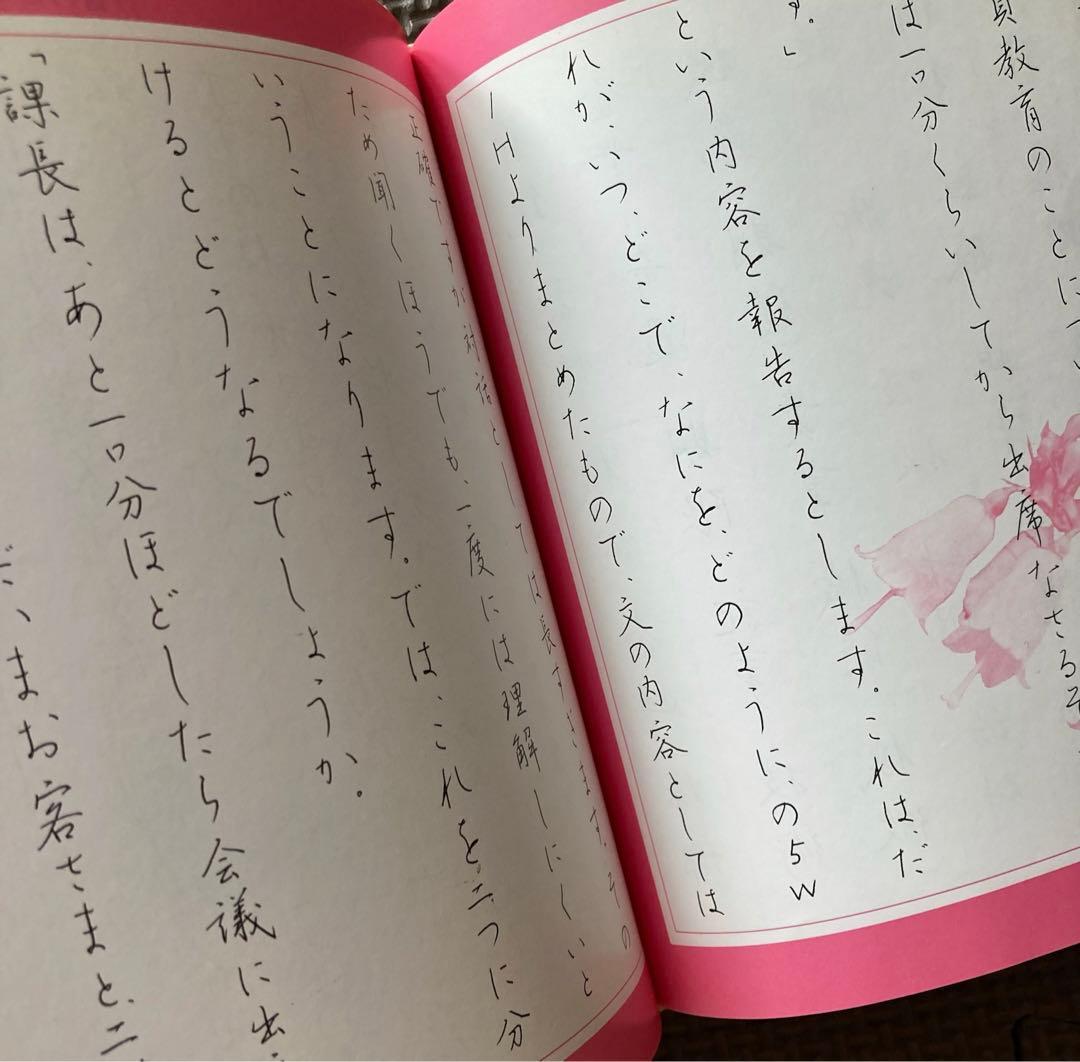 員教育のことについ
は一〇分くらいしてから出席なさるそ
す。」
という内容を報告するとします。これは、だ
れが、いつ、どこで、なにを、どのように、の5W
1Hよりまとめたもので、文の内容としては
正確ですが対話としては長すぎます。その
ため聞くほうでも、一度には理解しにくいと
いうことになります。では、これを二つに分
けるとどうなるでしょうか。
「課長は、あと一〇分ほどしたら会議に出
いまお客さまと、二